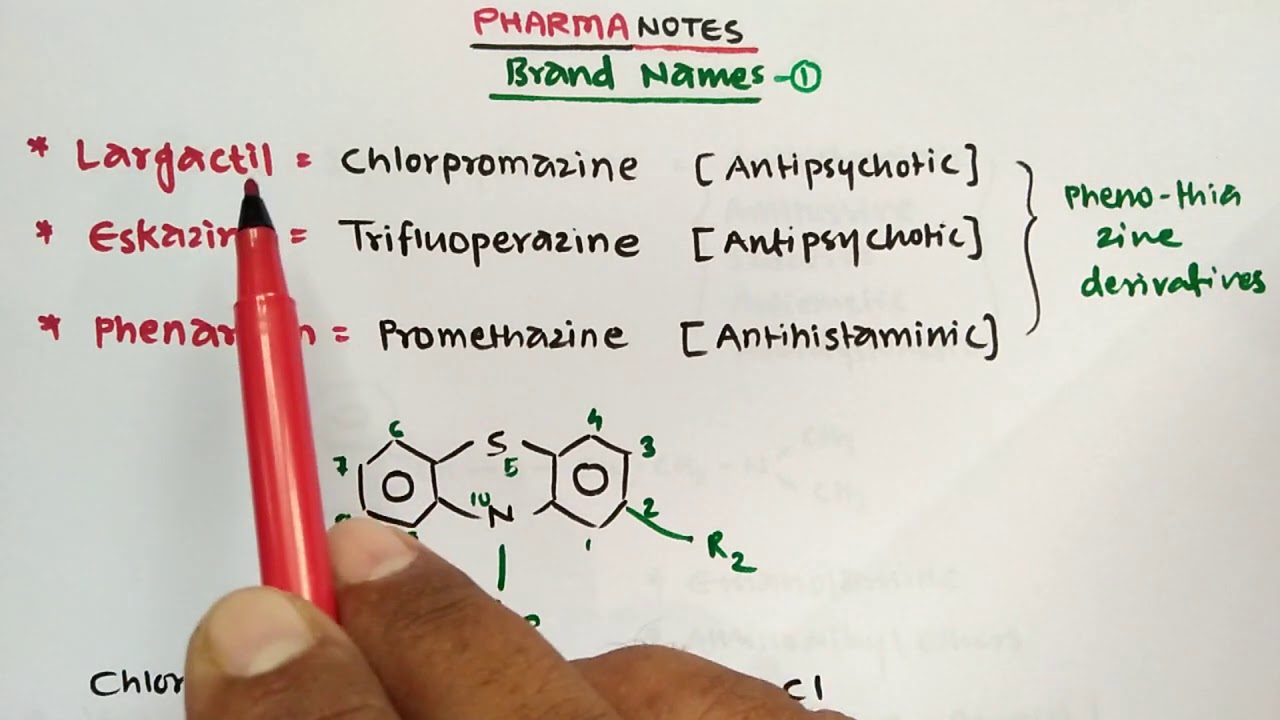 PHARMA NOTES
Brand Names - ①
* Largactil = Chlorpromazine [Antipsychotic]
* = Trifluoperazine [Antipsychotic]
* = Promethazine [Antihistaminic]
Pheno-thia
zine
derivatives
6 S 4
7 5 3
10 N 2
1 R2
Cl